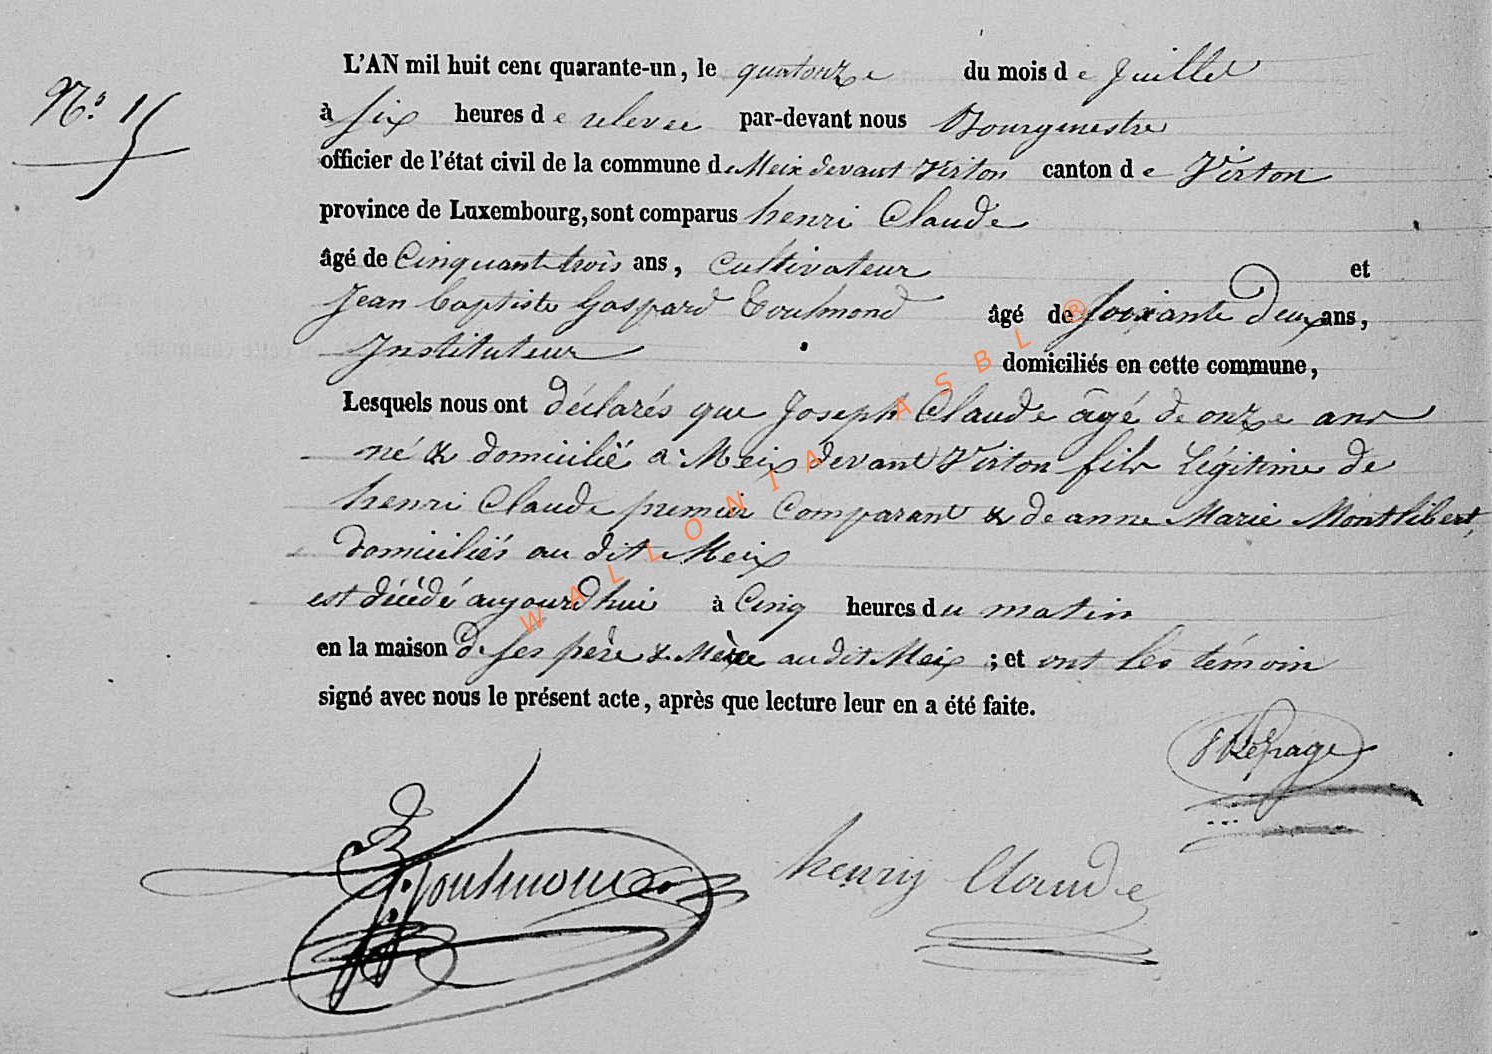 N.º 15
L'AN mil huit cent quarante-un, le quatorze du mois de Juillet
à six heures de relevée par-devant nous Bourgmestre
officier de l'état civil de la commune de Meix devant Virton canton de Virton
province de Luxembourg, sont comparus henri Claude
âgé de Cinquant trois ans, Cultivateur et
Jean baptiste Gaspard Toulmond âgé de soixante deux ans,
Instituteur domiciliés en cette commune,
Lesquels nous ont déclarés que Joseph Claude âgé de onze ans
né & domicilié a Meix devant Virton fils légitime de
henri Claude premier Comparant & de anne Marie Montlibert,
domiciliés au dit Meix
est décédé aujourdhui à Cinq heures du matin
en la maison de ses père & Mère au dit Meix ; et ont les témoin
signé avec nous le présent acte, après que lecture leur en a été faite.
Lepage
J. Toulmond henry Claude
WALLONIA ASBL ®